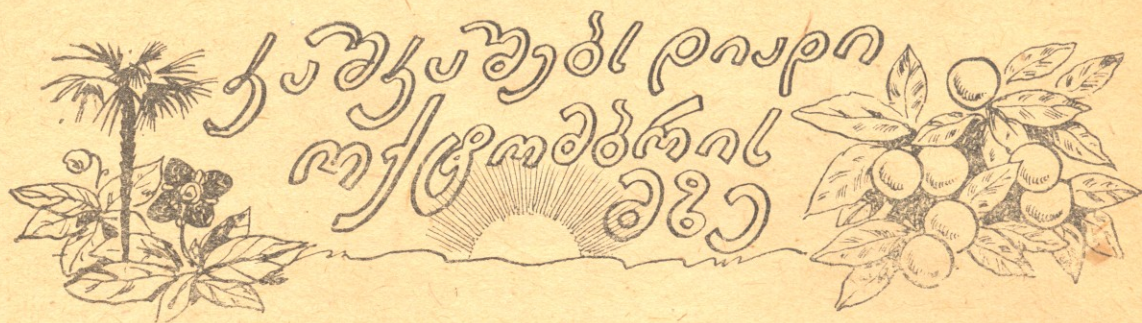 კაშკაშებს დიადი
ოქტომბრის
მზე